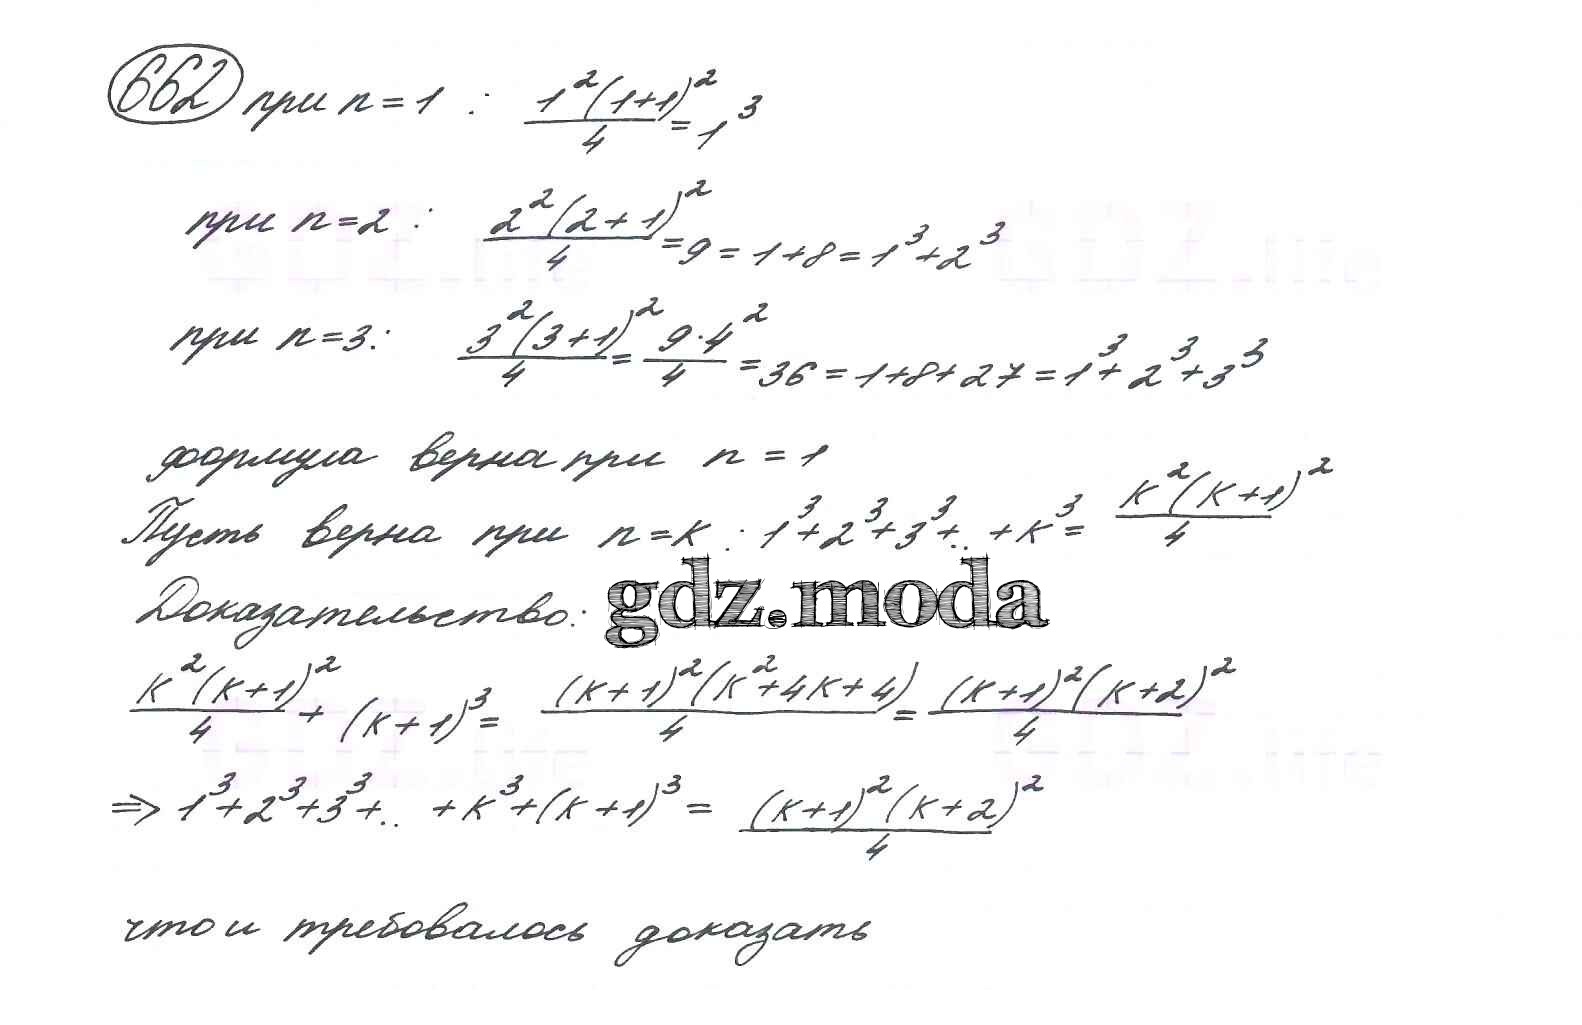 662 при n=1 : 1²(1+1)²/4 = 1³
при n=2 : 2²(2+1)²/4 = 9 = 1+8 = 1³+2³
при n=3: 3²(3+1)²/4 = 9·4²/4 = 36 = 1+8+27 = 1³+2³+3³
формула верна при n = 1
Пусть верна при n=k : 1³+2³+3³+.. +k³ = k²(k+1)²/4
Доказательство:
gdz.moda
k²(k+1)²/4 + (k+1)³ = (k+1)²(k²+4k+4)/4 = (k+1)²(k+2)²/4
⇒ 1³+2³+3³+.. +k³+(k+1)³ = (k+1)²(k+2)²/4
что и требовалось доказать